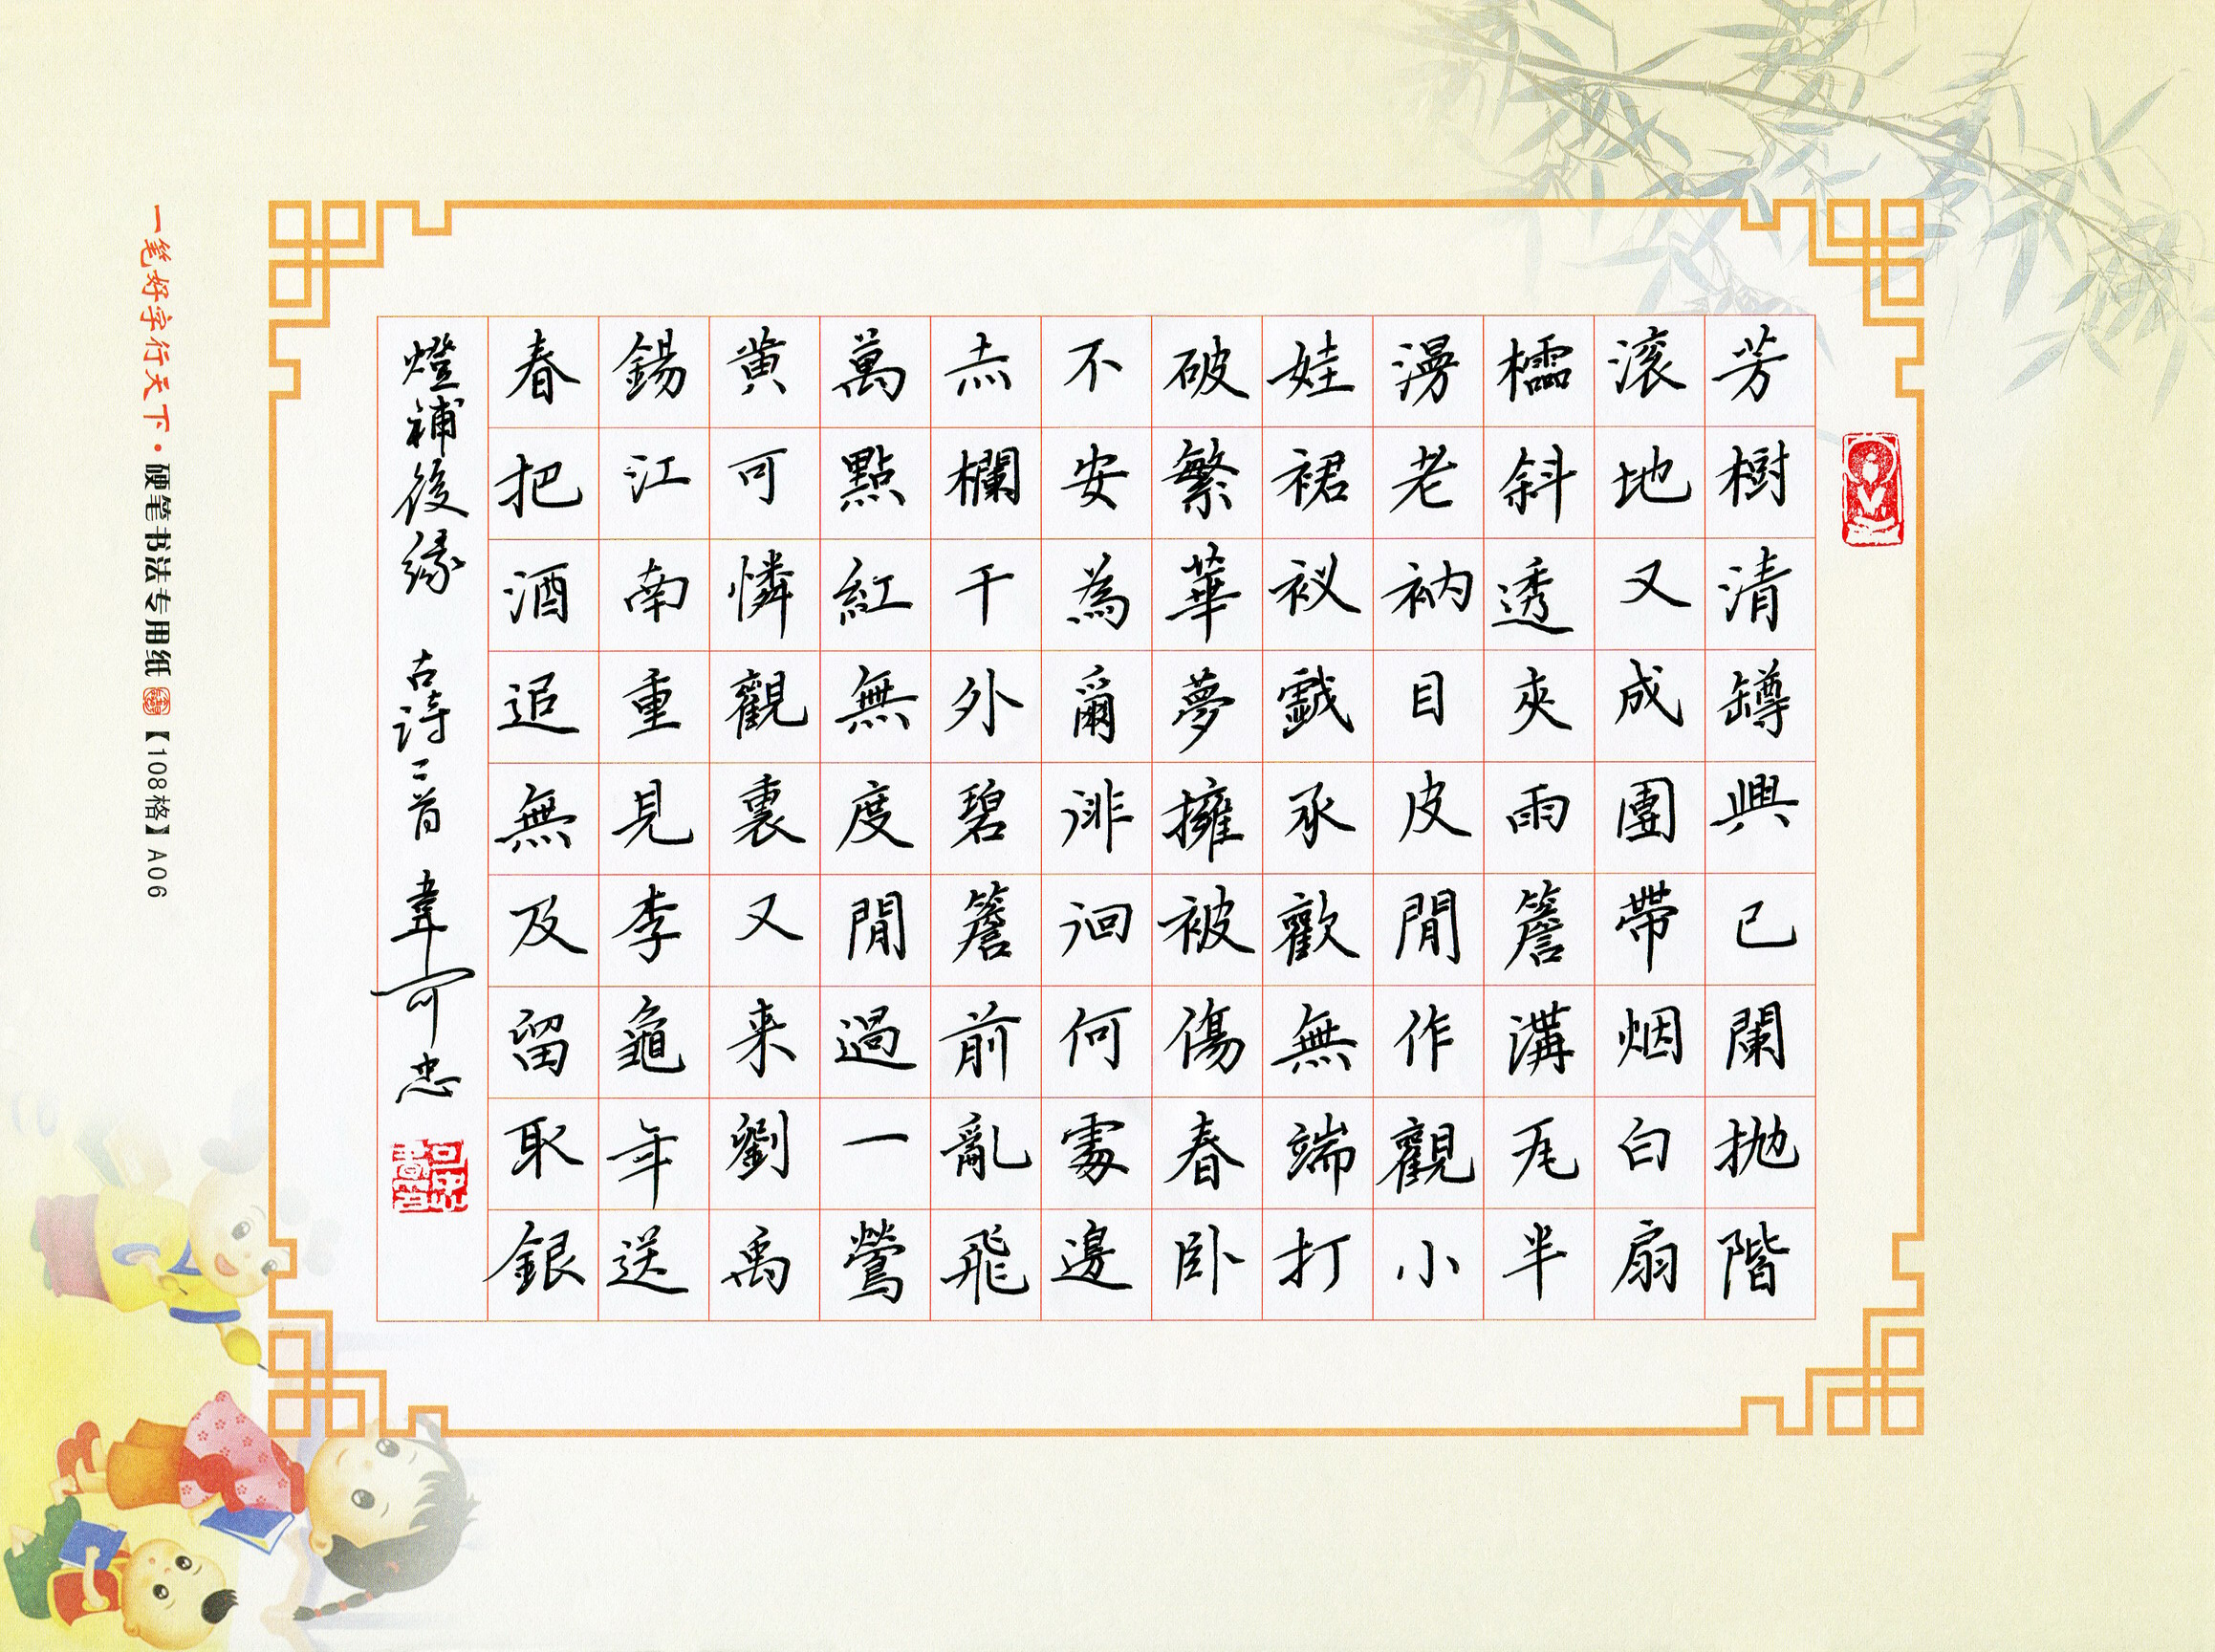 芳樹清罇興已闌拋階
滚地又成團帶烟白扇
櫺斜透夾雨簷溝瓦半
漫老衲目皮閒作觀小
娃裙衩戲承歡無端打
破繁華夢擁被傷春卧
不安為爾徘徊何處邊
赤欄干外碧簷前亂飛
萬點紅無度閒過一鶯
黄可憐觀裏又来劉禹
錫江南重見李龜年送
春把酒追無及留取銀
燈補後緣 古詩二首 韋可忠
一笔好字行天下·硬笔书法专用纸【108格】A06